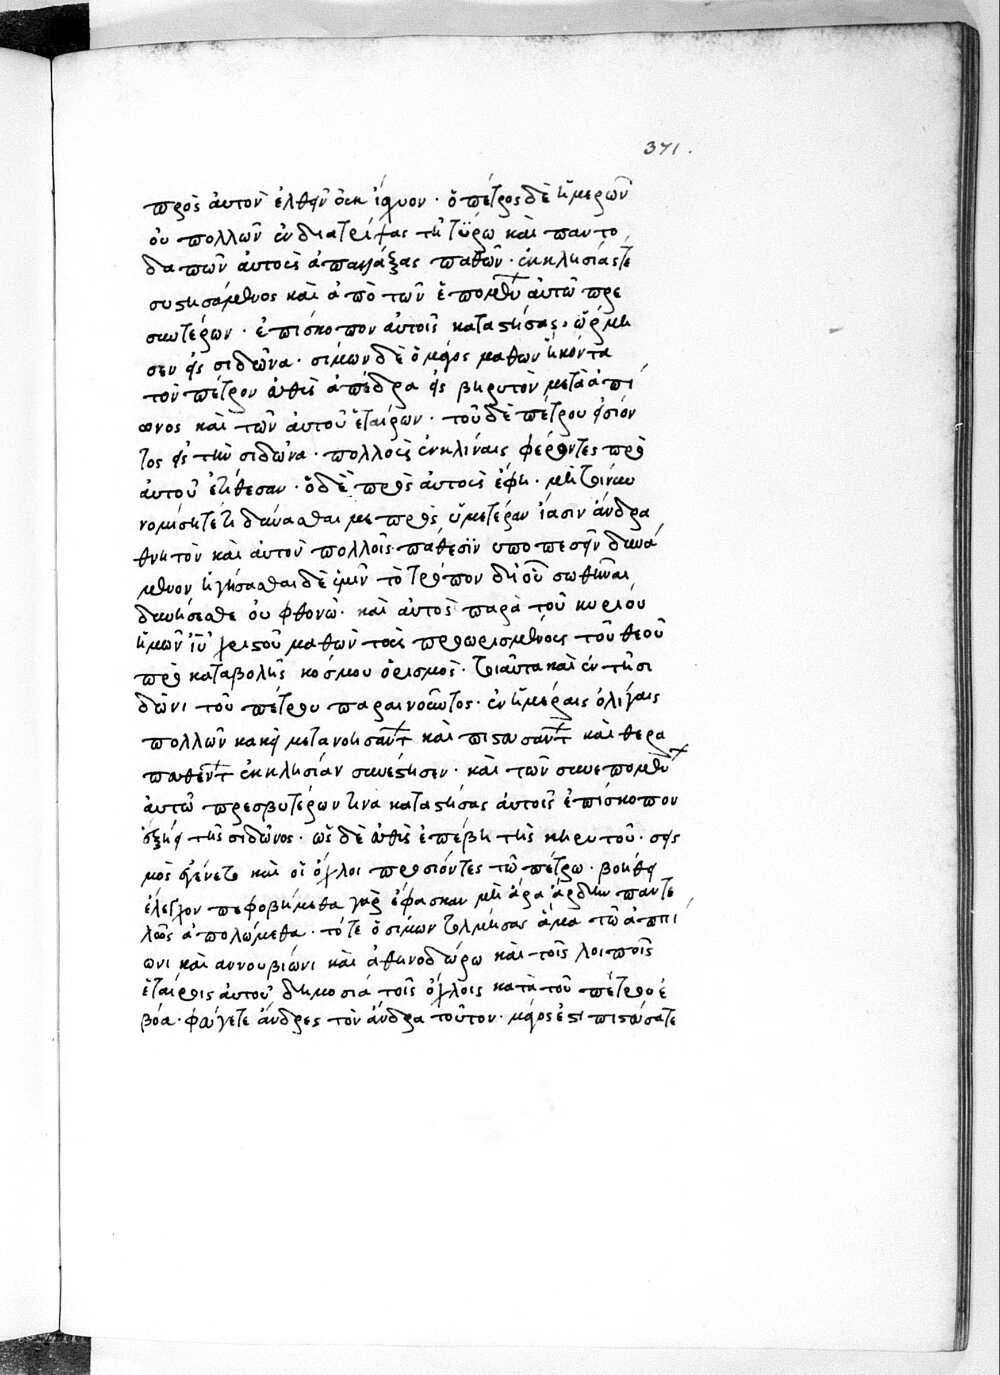 371.
πρὸς ἀυτὸν ἐλθεῖν ὀυκ ἴσχυον · ὁ πέτρος δὲ ἡμερῶν
ὀυ πολλῶν ἐνδιατρίψας τῇ τύρω καὶ παντο
δαπῶν ἀυτοὺς ἀπαλλάξας παθῶν · ἐκκλησίάς τε
συστησάμενος καὶ ἀπὸ τῶν ἑπομένων ἀυτῶ πρε
σβυτέρων · ἐπίσκοπον ἀυτοῖς καταστήσας, ὥρμη
σεν εἰς σιδῶνα · σίμων δὲ ὁ μάγος μαθὼν ἥκοντα
τὸν πέτρον ἐυθὺς ἀπέδρα εἰς βηρυτὸν μετὰ ἀπί
ωνος καὶ τῶν ἀυτοῦ ἑταίρων · τοῦ δὲ πέτρου εἰσιόν
τος εἰς τὴν σιδῶνα · πολλοὺς ἐν κλίναις φέροντες πρὸ
ἀυτοῦ ἐτίθεσαν · ὁ δὲ πρὸς ἀυτοὺς ἔφη · μὴ τοίνυν
νομίσητέ τι δύνασθαι με πρὸς ὑμετέραν ἴασιν ἄνδρα
θνητὸν καὶ ἀυτὸν πολλοῖς παθεσϊν ὑποπεσεῖν δυνά
μενον ἡγήσασθαι δὲ ὑμῖν τὸ τρόπον δι οὗ σωθῆναι
δυνήσεσθε ὀυ φθονῶ · καὶ ἀυτὸς παρὰ τοῦ κυρίου
ἡμῶν ἰῦ χριστοῦ μαθὼν τοὺς προωρισμένους τοῦ θεοῦ
πρὸ καταβολῆς κόσμου ὁρισμοὺς · τοιαῦτα καὶ ἐν τῇ σι
δῶνι τοῦ πέτρου παραινοῦντος · ἐν ἡμέραις ὀλίγαις
πολλῶν κακεῖ μετανοησάντων καὶ πιστευσάντων καὶ θερα
πευθέντων ἐκκλησίαν συνέστησεν · καὶ τῶν συνεπομένων
ἀυτῶ πρεσβυτέρων τινὰ καταστήσας ἀυτοῖς ἐπίσκοπον
ἐξήει τῆς σιδῶνος · ὡς δὲ ἐυθὺς ἐπέβη τῆς βηρυτοῦ · σεις
μὸς ἐγένετο καὶ οἱ ὄχλοι προσιόντες τῶ πέτρω · βοήθει
ἔλεγον πεφοβήμεθα γὰρ ἔφασκον μὴ ἄρα ἄρδην παντε
λῶς ἀπολώμεθα · τότε ὁ σίμων τολμήσας ἅμα τῶ ἀππί
ωνι καὶ ανουβίωνι καὶ ἀθηνοδώρω καὶ τοῖς λοιποῖς
ἑταίροις ἀυτοῦ δημοσία τοῖς ὄχλοις κατὰ τοῦ πέτρου ἐ
βόα · φεύγετε ἄνδρες τὸν ἄνδρα τοῦτον · μάγος ἐστὶ πιστεύσατε